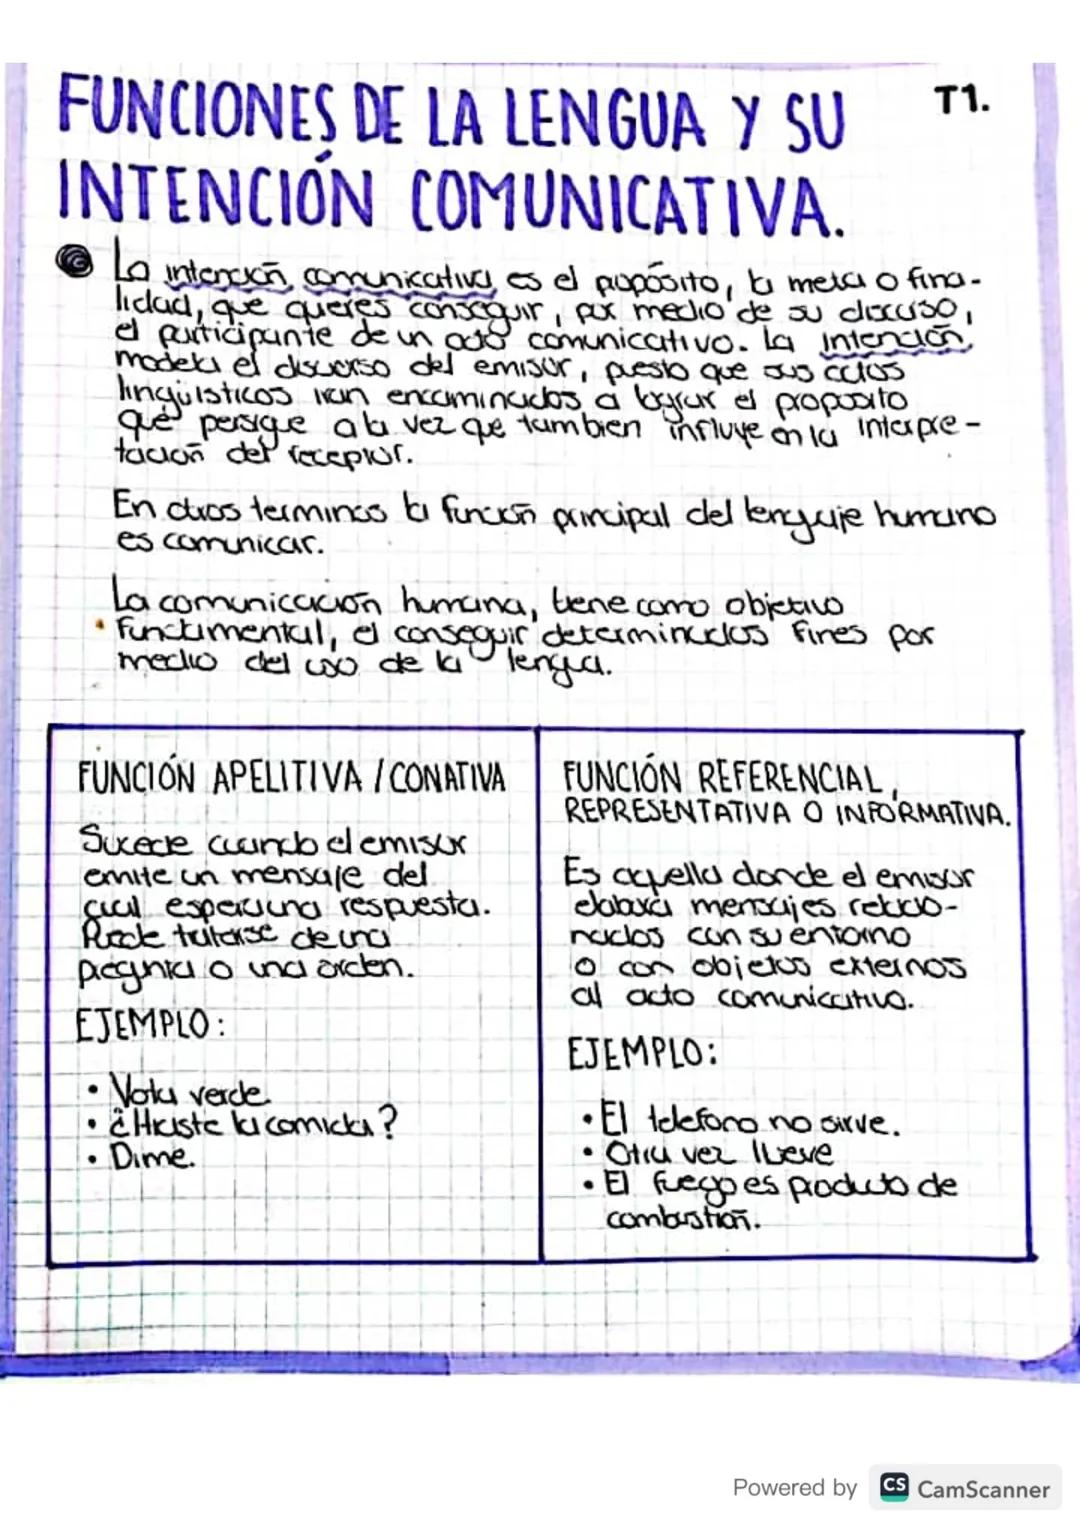 FUNCIONES DE LA LENGUA Y SU
T1.
INTENCIÓN COMUNICATIVA.
La intención comunicativa es el propósito, la meta o fina-
lidad, que quieres conseguir, por medio de su discurso,
el participante de un acto comunicativo. La intención
modela el discurso del emisor, puesto que sus actos
lingüisticos iran encaminados a lograr el proposito
que persigue a la vez que tambien influye en la interpre-
tación del receptor.
En otros terminos la función principal del lenguaje humano
es comunicar.
La comunicación humana, tiene como objetivo
fundamental, el conseguir determinados fines por
medio del uso de la lengua.
FUNCIÓN APELITIVA / CONATIVA
Sucede cuando el emisor
emite un mensaje del
cual espera una respuesta.
Puede tratarse de una
pregunta o una orden.
EJEMPLO:
• Vota verde
• ¿Hiciste la comida?
• Dime.
FUNCIÓN REFERENCIAL,
REPRESENTATIVA O INFORMATIVA.
Es aquella donde el emisor
elabora mensajes relacio-
nados con su entorno
o con objetos externos
al acto comunicativo.
EJEMPLO:
• El telefono no sirve.
• Otra vez llueve
• El fuego es producto de
combustión.
Powered by CS CamScanner